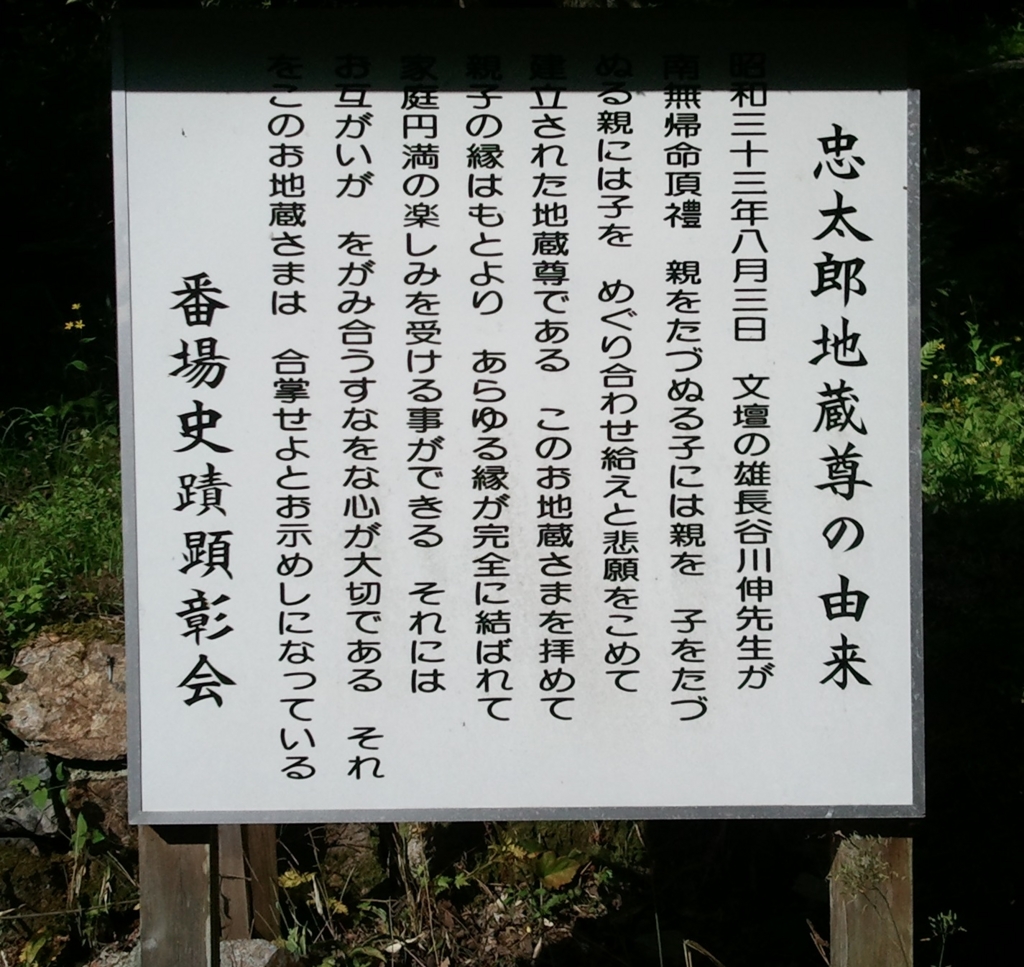 忠太郎地蔵尊の由来
昭和三十三年八月三日　文壇の雄長谷川伸先生が
南無帰命頂禮　親をたづぬる子には親を　子をたづ
ぬる親には子を　めぐり合わせ給えと悲願をこめて
建立された地蔵尊である　このお地蔵さまを拝めて
親子の縁はもとより　あらゆる縁が完全に結ばれて
家庭円満の楽しみを受ける事ができる　それには
お互がいが　をがみ合うすなをな心が大切である　それ
をこのお地蔵さまは　合掌せよとお示めしになっている
番場史蹟顕彰会